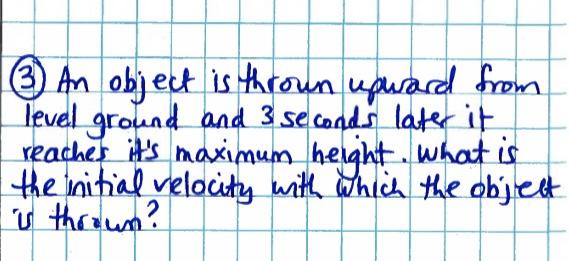 ③ An object is thrown upward from
level ground and 3 seconds later it
reaches it's maximum height. What is
the initial velocity with which the object
is thrown?